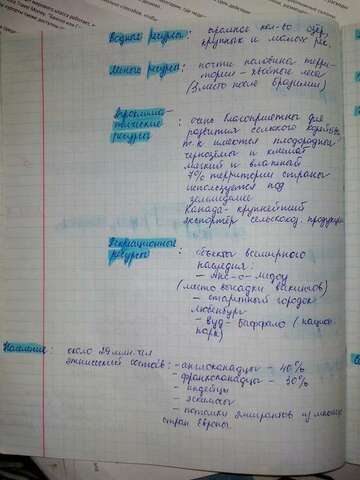 Водные ресурсы: огромное кол-во озёр,
крупных и малых рек.
Лесные ресурсы: почти половина терри-
тории - хвойные леса
(3 место после Бразилии)
Агроклима-
тические
ресурсы: очень благоприятны для
развития сельского хозяйства
т.к имеются плодородные
чернозёмы и климат
мягкий и влажный
7% территории страны
используется под
земледелие
Канада - крупнейший
экспортёр сельскохоз. продукции
Рекреационные
ресурсы: объекты всемирного
наследия:
- Анс-о-Медоу
(место высадки викингов)
- старинный городок
Люненбург
- Вуд-Баффало (национ.
парк)
Население: около 29 млн. чел
этнический состав: - англоканадцы - 40%
- франкоканадцы - 30%
- индейцы
- эскимосы
- потомки эмигрантов из многих
стран Европы.